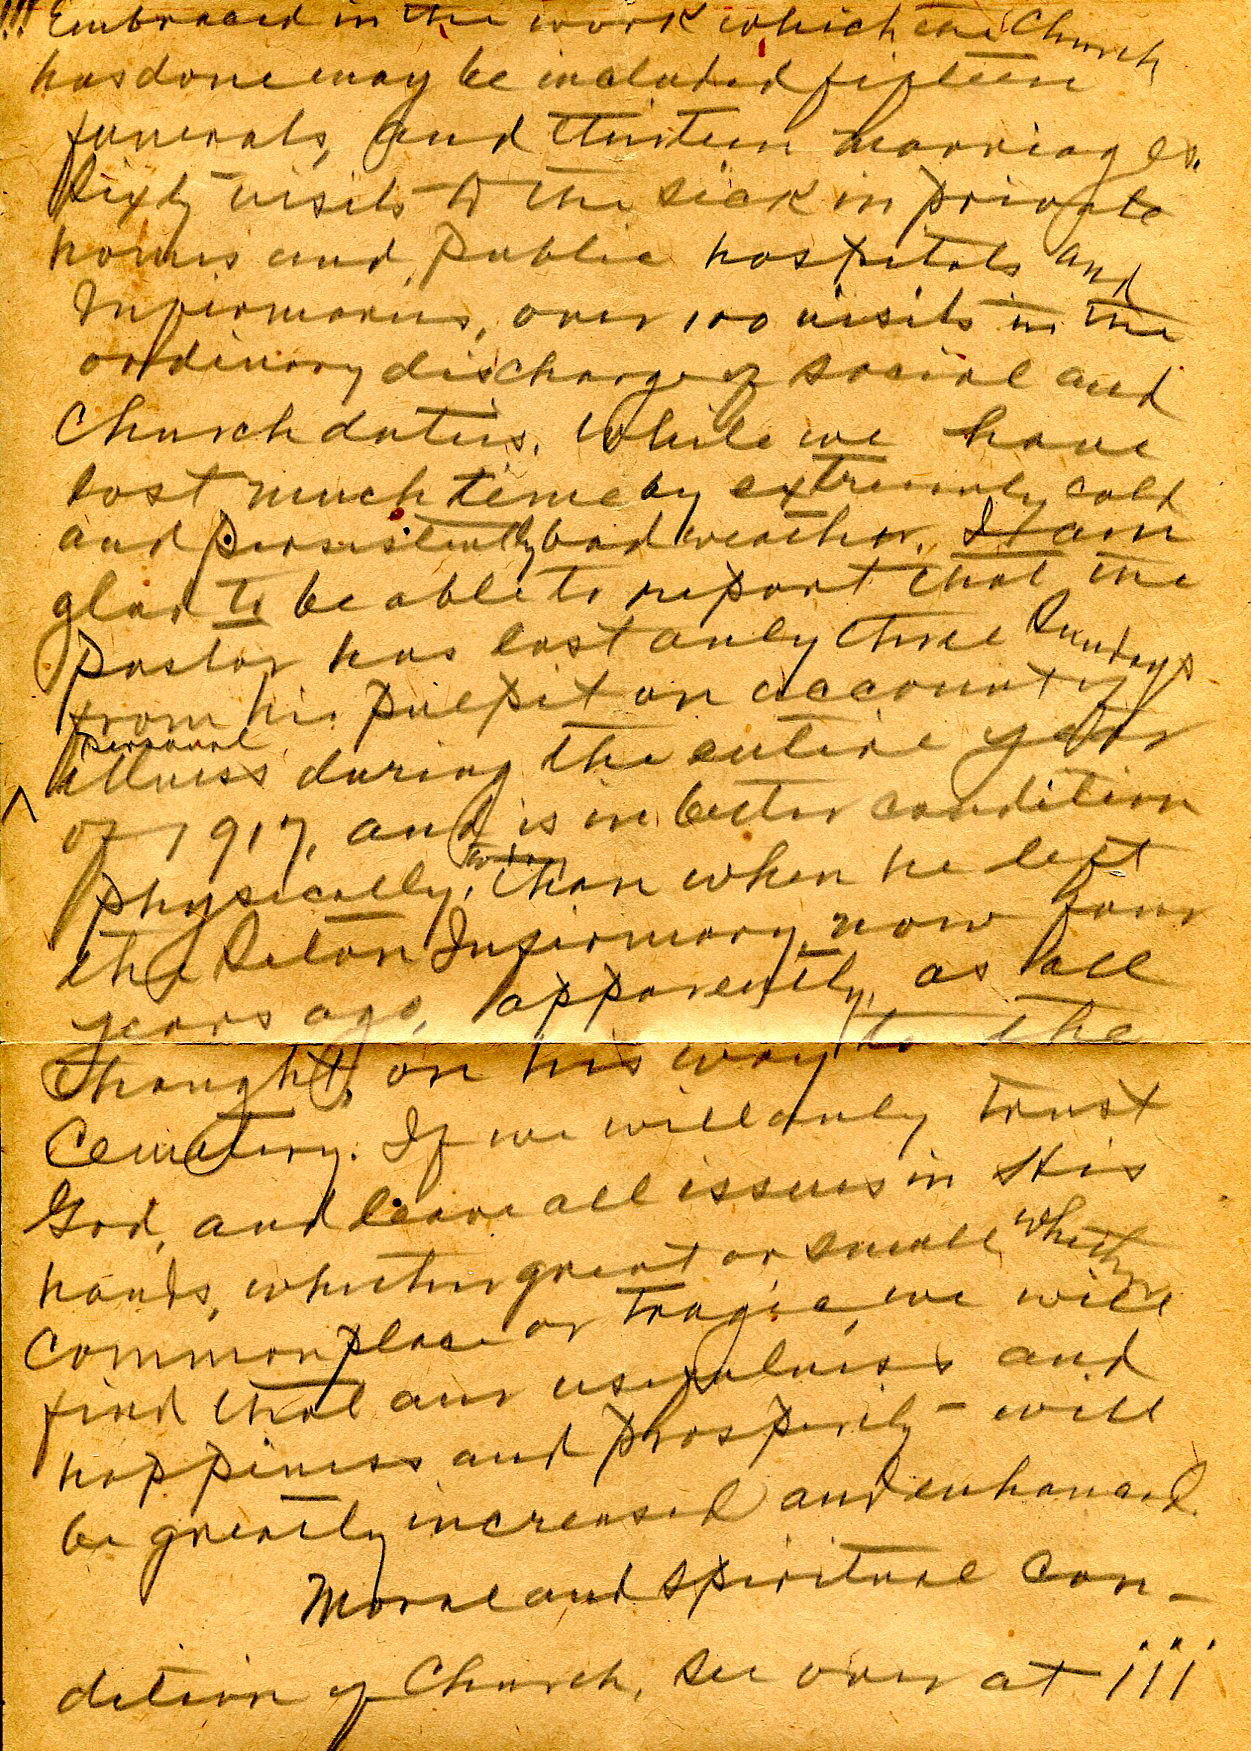 !!! Embraced in the work which the Church
has done may be included fifteen
funerals, and thirteen marriages.
Sixty visits to the sick in private
homes and public hospitals and
Infirmaries, over 100 visits in the
ordinary discharge of social and
Church duties. While we have
lost much time by extremely cold
and persistently bad weather, I am
glad to be able to report that the
pastor has lost only three Sundays
from his pulpit on account of
personal
illness during the entire year
of 1917, and is in better condition
physically, than when he left
the Seton Infirmary, now four
years ago, apparently, as all
thought, on his way to the
Cemetery. If we will only trust
God, and leave all issues in His
hands, whether great or small, whether
commonplace or tragic, we will
find that our usefulness and
happiness and prosperity - will
be greatly increased and enhanced.
Moral and spiritual con-
dition of Church, see over at iii